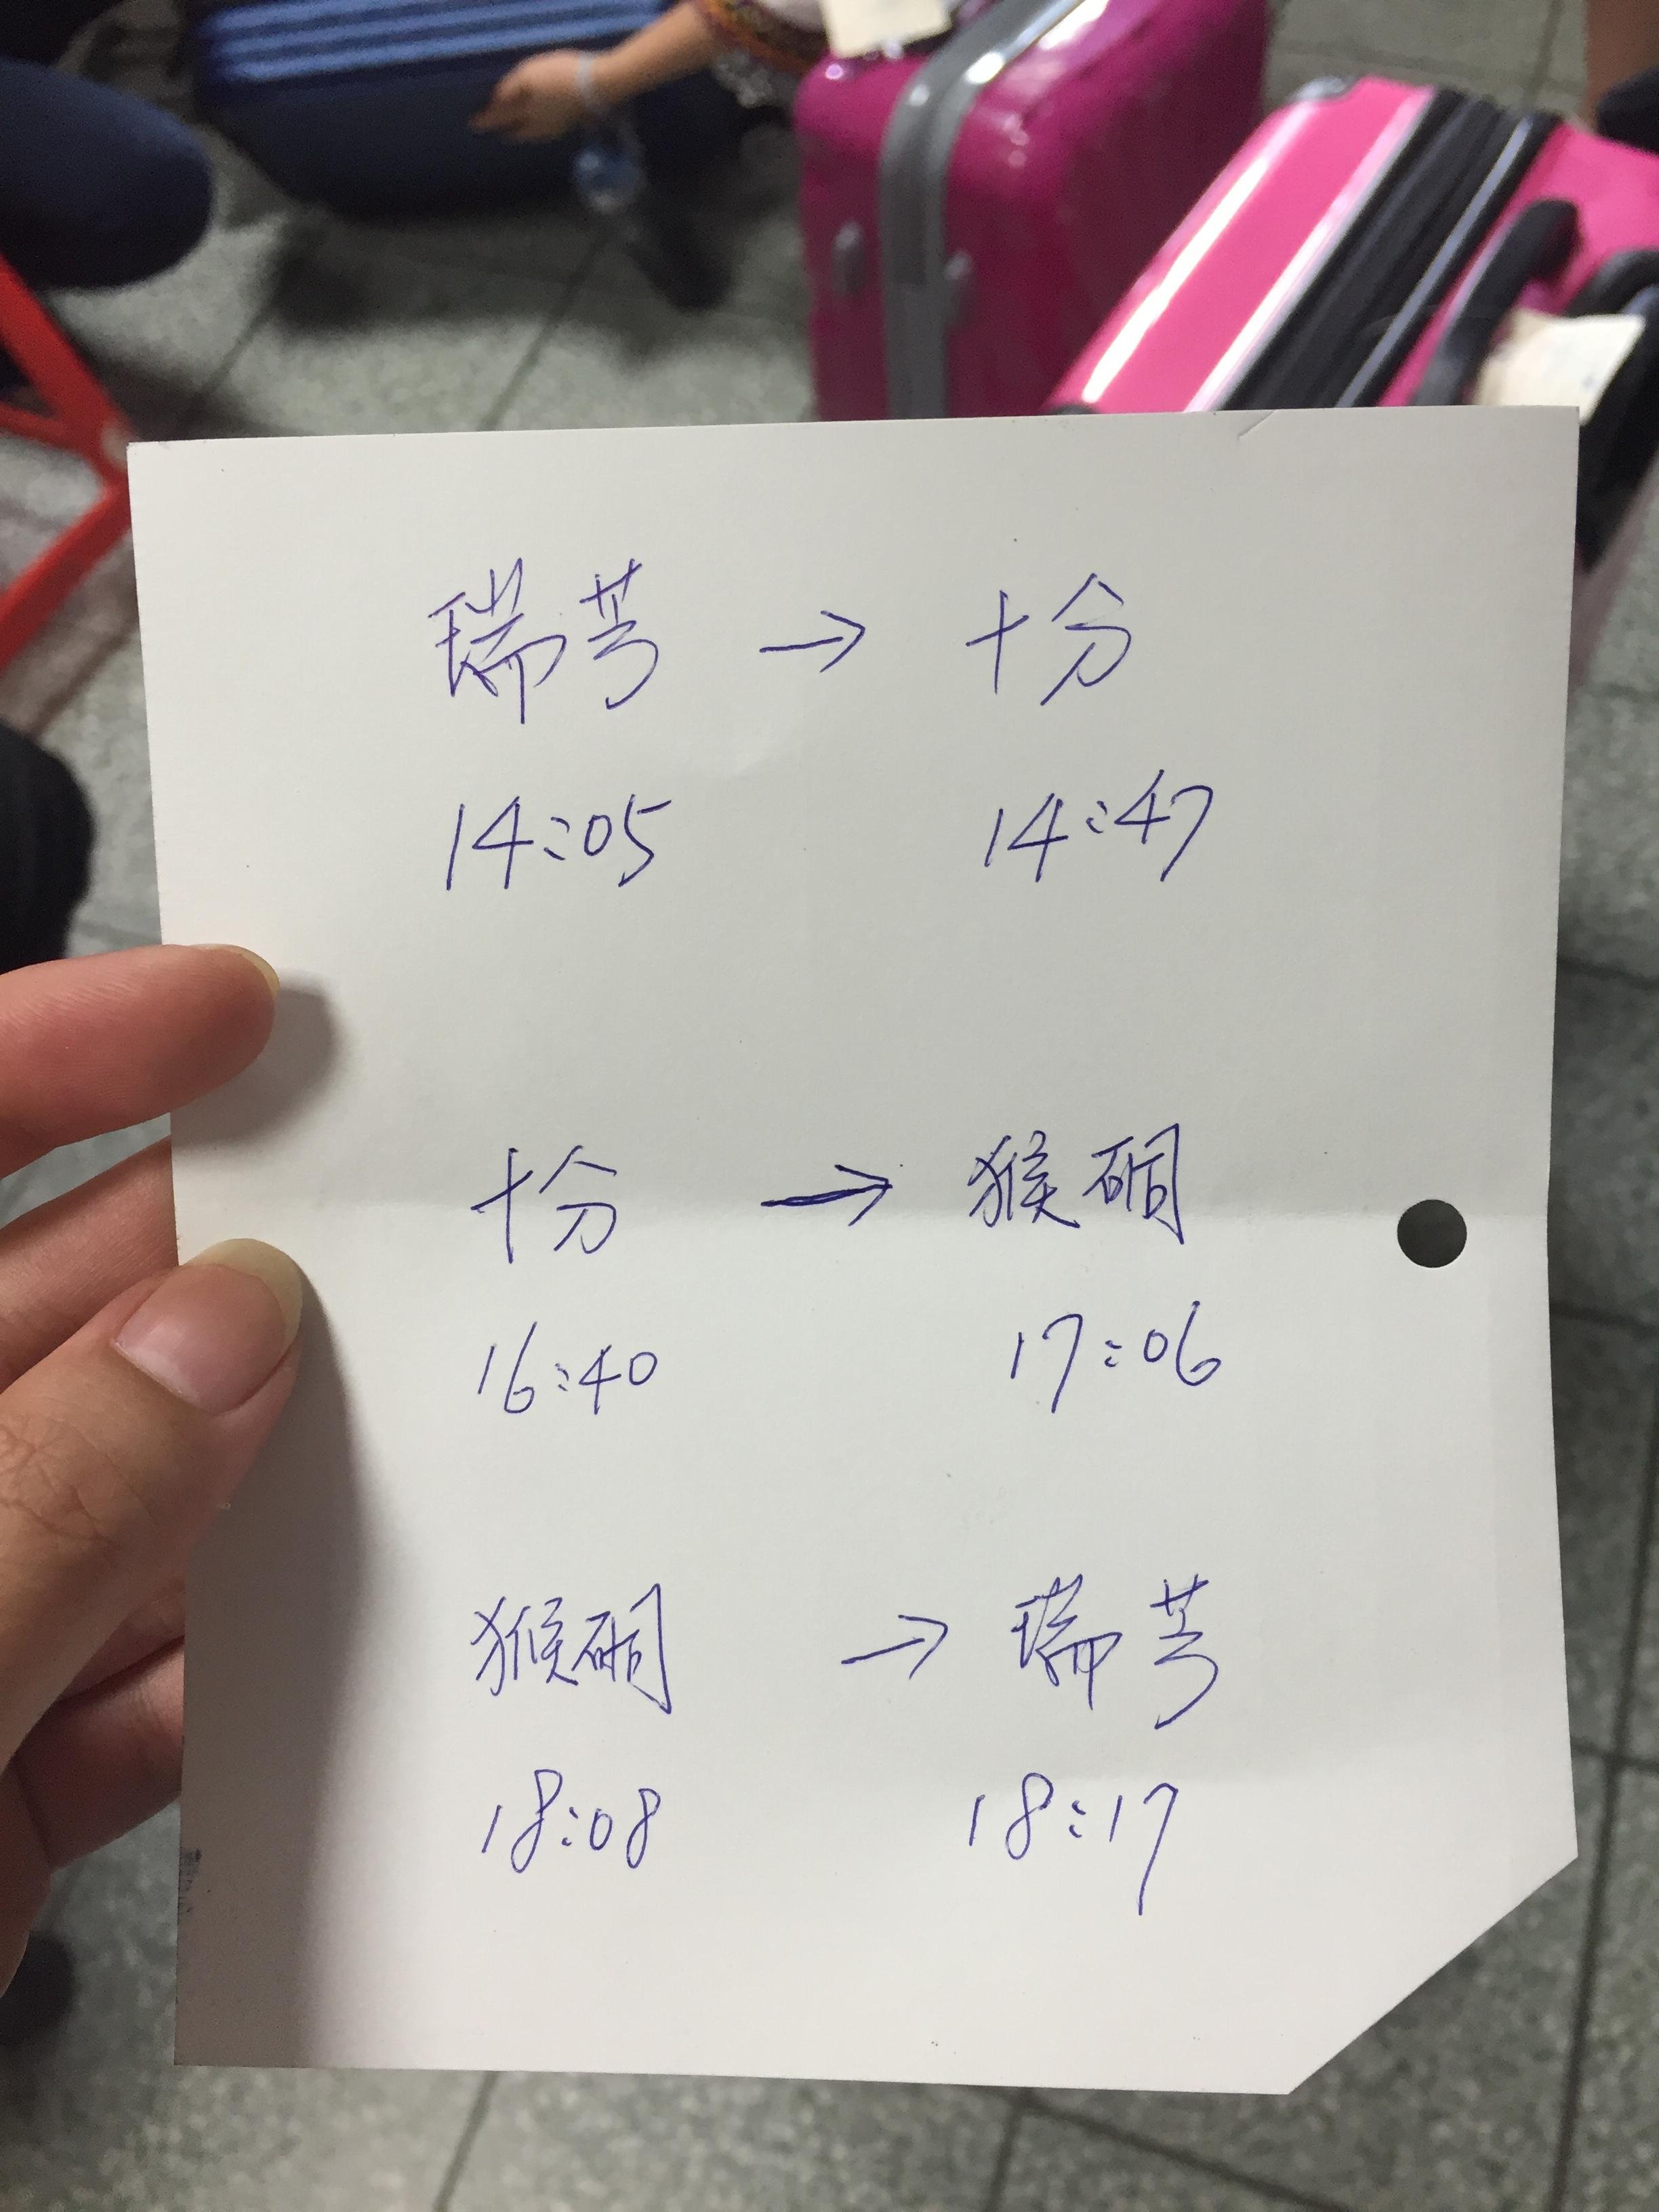 瑞芳 → 十分
14:05 14:47
十分 → 猴硐
16:40 17:06
猴硐 → 瑞芳
18:08 18:17